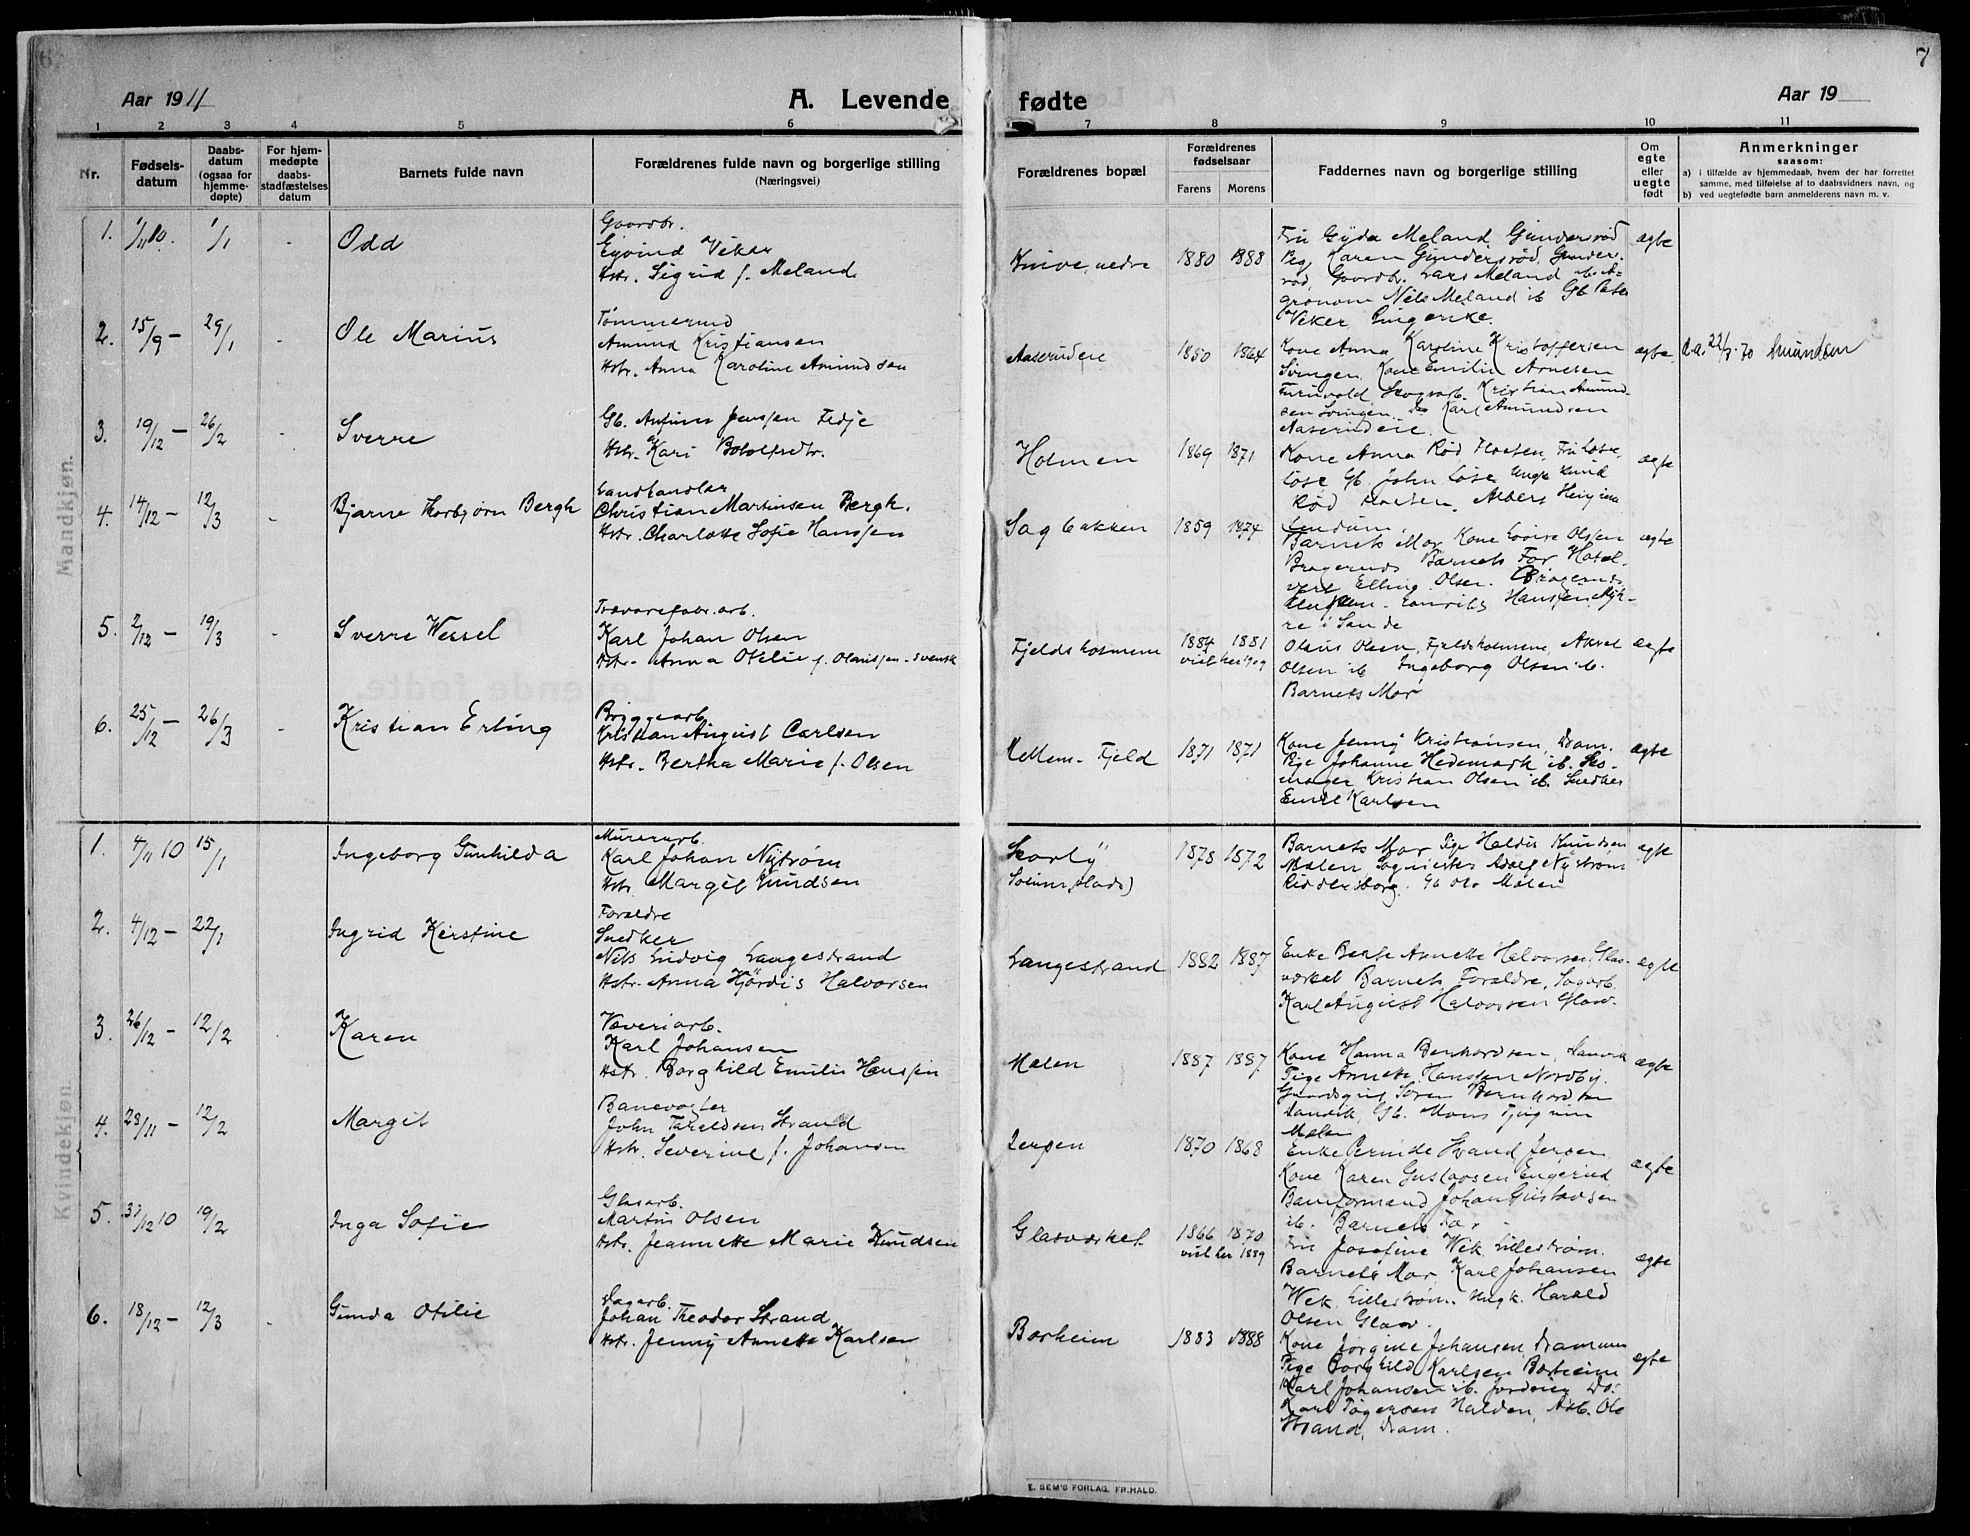 7
Aar 1911
A. Levende fødte
Aar 19
1 2 3 4 5 6 7 8 9 10 11
Nr.
Fødsels-
datum
Daabs-
datum
(ogsaa for
hjemme-
døpte)
For hjem-
medøpte
daabs-
stadfæstelses
datum
Barnets fulde navn
Forældrenes fulde navn og borgerlige stilling
(Næringsvei)
Forældrenes bopæl
Forældrenes
fødselsaar
Farens Morens
Faddernes navn og borgerlige stilling
Om
egte
eller
uegte
født
Anmerkninger
saasom:
a) i tilfælde av hjemmedaab, hvem der har forrettet
samme, med tilføielse av to daabsvidners navn, og
b) ved uegtefødte barn anmelderens navn m. v.
Mandkjøn.
1. 1/11 10. 1/1 - Odd
Gaardbr.
Eyvind Veker
Hstr. Sigrid f. Meland
Knive, nedre 1880 1888
Fru Gyda Meland, Gundersrød
Pig. Karen Gundersrød, Gunders-
rød, Gaardbr. Lars Meland ib. A-
gronom Nils Meland ib Gb. Peter
Veker
ægte
2. 15/9 - 29/1 - Ole Marius
Amund Kristiansen
Hstr. Anna Karoline Amundsen
Aaserudeie 1850 1864
Kone Anna Karoline Kristoffersen
Svingen, Kone Emilie Arnesen
Furuvold, Skogsarb. Kristian Amund-
sen Svingen, Do Karl Amundsen
Aaserudeie.
ægte
d.a. 22/3-70 Amundsen
3. 19/12 - 26/2 - Sverre
Gb. Anfinn Jenssen Fedje
Hstr. Kari Botolfsdtr.
Holmen 1869 1871
Kone Anna Rød Floeten, Fru Løse,
Løse Gb. John Løse Ungk Knud
Rød
ægte
4. 14/12 - 12/3 - Bjarne Thorbjørn Bergh
Landhandler
Christian Martinsen Bergh.
Hstr. Charlotte Sofie Hanssen
Sagbakken 1859 1874
Barnets Mor Kone Lovise Olsen
Bragernes Barnets Far Hotel-
vert Elling Olsen. Bragernes
Hanssen Myh-
re i Sande
ægte
5. 2/12 - 19/3 - Sverre Wessel
Trævarefabr.arb.
Karl Johan Olsen
Hstr. Anna Otilie f. Olaussen - svensk
Fjeldsholmene 1884 1881
viet her 1909
Olaus Olsen, Fjeldsholmene, Aksel
Olsen ib Ingeborg Olsen ib.
Barnets Mor
ægte
6. 25/12 - 26/3 - Kristian Erling
Bryggearb.
Kristian August Carlsen
Hstr. Bertha Marie f. Olsen
Mellem-Fjeld 1871 1871
Kone Jenny Kristiansen, Dram.
Pige Johanne Hedemark ib. Sko-
mager Kristian Olsen ib. Snedker
Emil Karlsen
ægte
Kvindekjøn.
1. 4/11 10 15/1 Ingeborg Gunhilda
Murerarb.
Karl Johan Nystrøm
Hstr Margit Knudsen
1878 1872
Barnets Mor Pige Haldis Knudsen
Mælen, Sagmester Adolf Nystrøm
Riddersborg. Gb Ole Mælen
ægte
2. 4/12 - 22/1 Ingrid Kirstine
Forældre
Snedker
Nils Ludvig Langestrand
Hstr. Anna Hjördis Halvorsen
Langestrand 1882 1887
Enke Berte Annette Halvorsen, Glas-
værket Barnets Forældre, Sagarb.
Karl August Halvorsen Glasv.
ægte
3. 26/12 - 12/2 Karen
Væveriarb.
Karl Johansen
Hstr. Borghild Emilie Hanssen
Mælen 1887 1887
Kone Hanna Bernhardsen, Lanvik
Pige Annette Hanssen Nordby.
Gaardsgut Søren Bernhardsen
Lanvik, Gb. Mons
Mælen
ægte
4. 28/11 - 12/2 Margit
Banevogter
John Taraldsen Strand
Hstr. Severine f. Johansen
Jerpen 1870 1868
Enke Pernille Strand Jerpen,
Kone Karen Gustavsen Engerud
Baneformand Johan Gustavsen
ib. Barnets Far
ægte
5. 31/12 10 19/2 Inga Sofie
Glasarb.
Martin Olsen
Hstr. Jeannette Marie Knudsen
Glasværket 1866 1870
viet her 1889
Fru Josefine Wek, Lillestrøm.
Barnets Mor, Karl Johansen
Wek, Lillestrøm. Ungk. Harald
Olsen Glasv.
ægte
6. 18/12 - 12/3 - Gunda Otilie
Dagarb.
Johan Theodor Strand
Hstr. Jenny Annette Karlsen
Borheim 1883 1888
Kone Jorgine Johansen, Drammen
Pige Borghild Karlsen Borheim
Karl Johansen ib.
Karl Tøgersen Halden, Arb. Ole
Strand, Dram.
ægte
E. SEM'S FORLAG, FR.HALD.